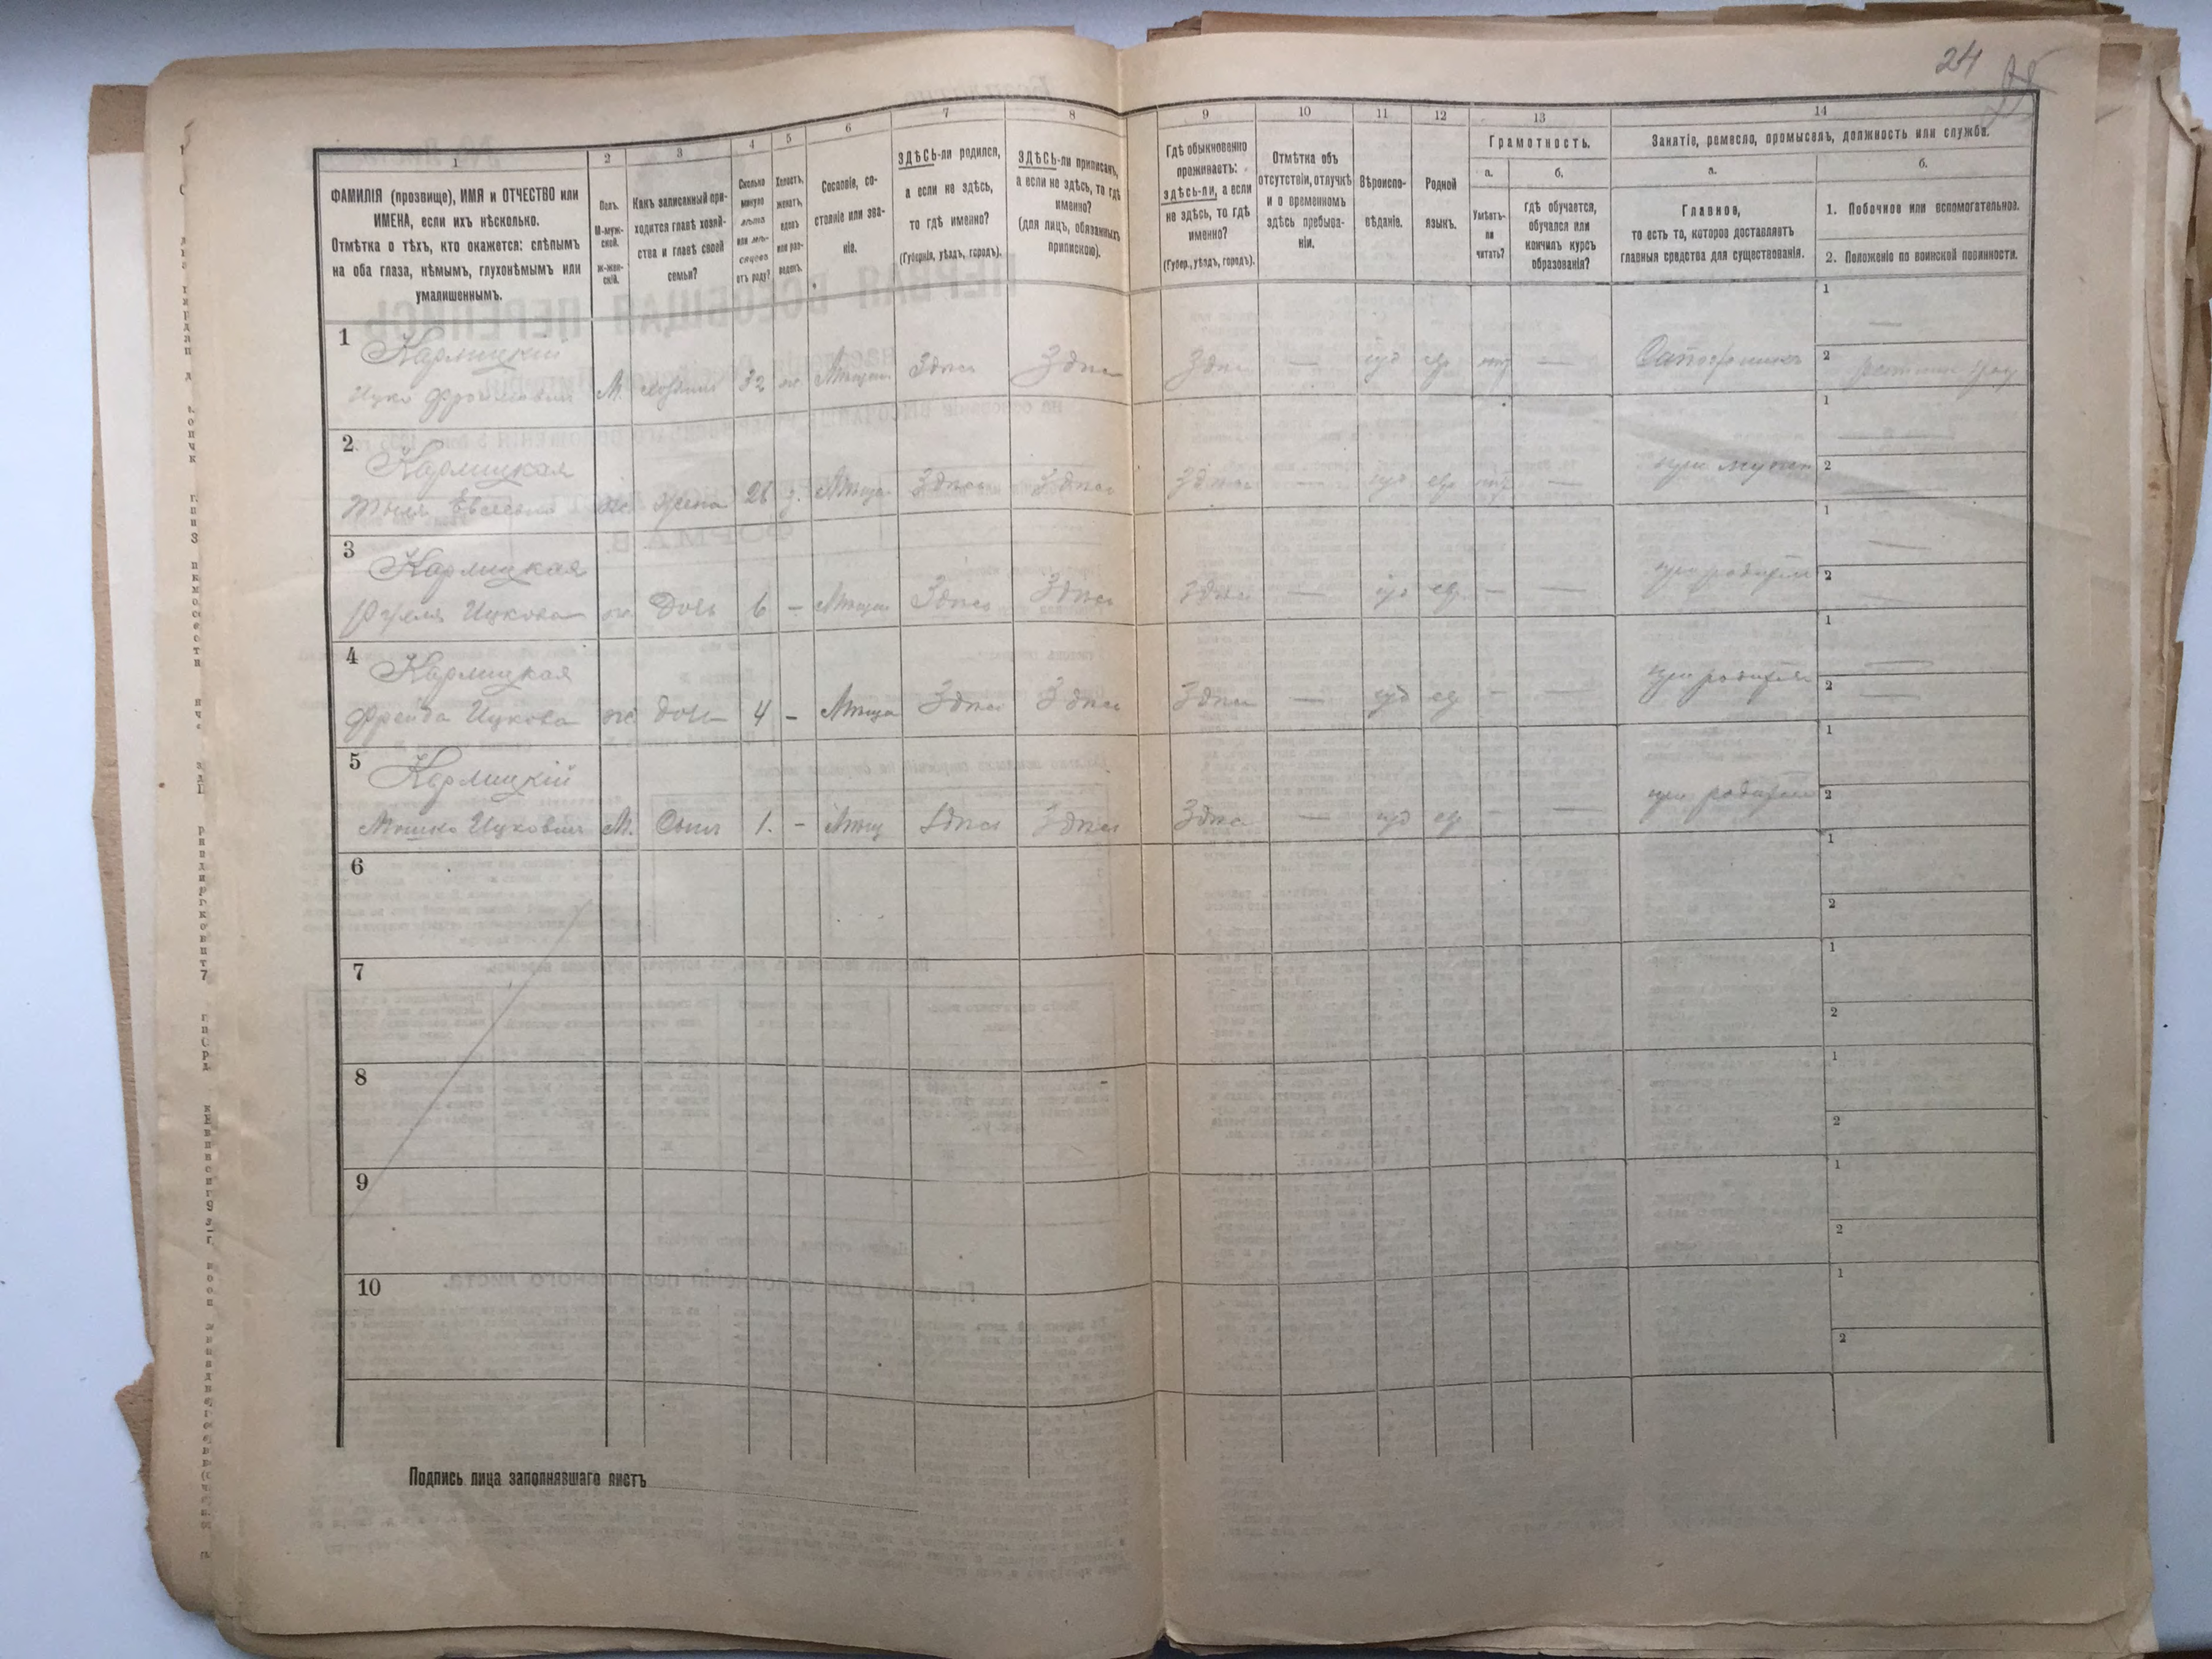 24
1
ФАМИЛІЯ (прозвище), ИМЯ и ОТЧЕСТВО или
ИМЕНА, если ихъ нѣсколько.
Отмѣтка о тѣхъ, кто окажется: слѣпымъ
на оба глаза, нѣмымъ, глухонѣмымъ или
умалишеннымъ.
2
Полъ.
М-муж-
ской.
ж-жен-
скій.
3
Какъ записанный при-
ходится главѣ хозяй-
ства и главѣ своей
семьи?
4
Сколько
минуло
лѣтъ
или мѣ-
сяцевъ
отъ роду?
5
Холостъ,
женатъ,
вдовъ
или раз-
веденъ.
6
Сословіе, со-
стояніе или зва-
ніе.
7
ЗДѢСЬ-ли родился,
а если не здѣсь,
то гдѣ именно?
(Губернія, уѣздъ, городъ).
8
ЗДѢСЬ-ли приписанъ,
а если не здѣсь, то гдѣ
именно?
(для лицъ, обязанныхъ
припискою).
9
Гдѣ обыкновенно
проживаетъ:
здѣсь-ли, а если
не здѣсь, то гдѣ
именно?
(Губер., уѣздъ, городъ).
10
Отмѣтка объ
отсутствіи, отлучкѣ
и о временномъ
здѣсь пребыва-
ніи.
11
Вѣроиспо-
вѣданіе.
12
Родной
языкъ.
13
Грамотность.
а.
Умѣетъ-
ли
читать?
б.
Гдѣ обучается,
обучался или
кончилъ курсъ
образованія?
14
Занятіе, ремесло, промыселъ, должность или служба.
а.
Главное,
то есть то, которое доставляетъ
главныя средства для существованія.
б.
1. Побочное или вспомогательное.
2. Положеніе по воинской повинности.
1
Кармицкій
Ицко Фроимовичъ М. хозяинъ 32 ж Мѣщан Здѣсь Здѣсь Здѣсь — іуд евр — Сапожникъ
1 —
2
2
Кармицкая
ж Жена 26 з. Мѣщан Здѣсь Здѣсь Здѣсь — іуд евр — при мужѣ
1 —
2 —
3
Кармицкая
Ицкова ж Дочь 6 — Мѣщан Здѣсь Здѣсь Здѣсь — іуд евр — — при родител
1 —
2 —
4
Кармицкая
Фрейда Ицкова ж дочь 4 — Мѣщан Здѣсь Здѣсь Здѣсь — іуд евр — — при родител
1 —
2 —
5
Кармицкій
Мошко Ицковичъ М. Сынъ 1. — Мѣщ Здѣсь Здѣсь Здѣсь — іуд евр — — при родител
1
2
6
1
2
7
1
2
8
1
2
9
1
2
10
1
2
Подпись лица заполнявшаго листъ